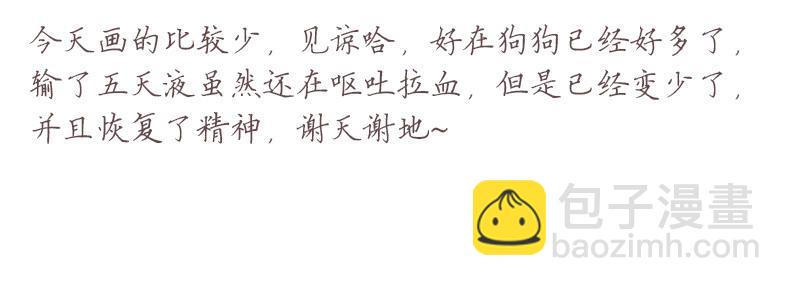 今天画的比较少，见谅哈，好在狗狗已经好多了，
输了五天液虽然还在呕吐拉血，但是已经变少了，
并且恢复了精神，谢天谢地~
包子漫畫
baozimh.com